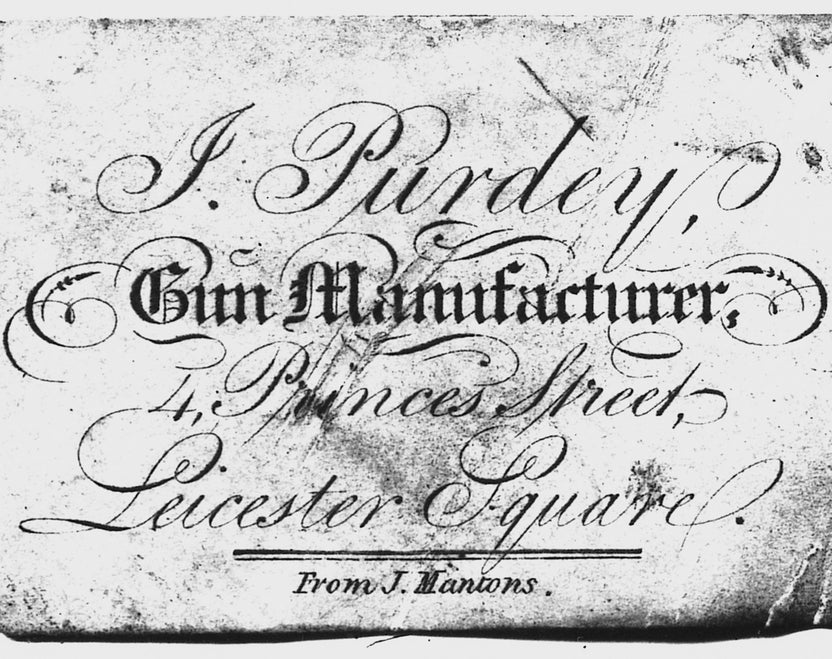 J. Purdey,
Gun Manufacturer,
4, Princes Street,
Leicester Square.
From J. Mantons.